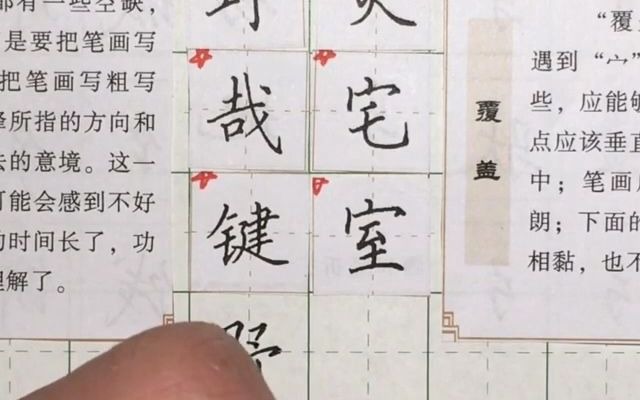 都有一些空缺，
是要把笔画写
把笔画写粗写
锋所指的方向和
去的意境。这一
可能会感到不好
的时间长了，功
理解了。
哉 宅
键 室
覆盖
“覆
遇到“宀”
些，应能够
点应该垂直
中；笔画
朗；下面的
相黏，也不